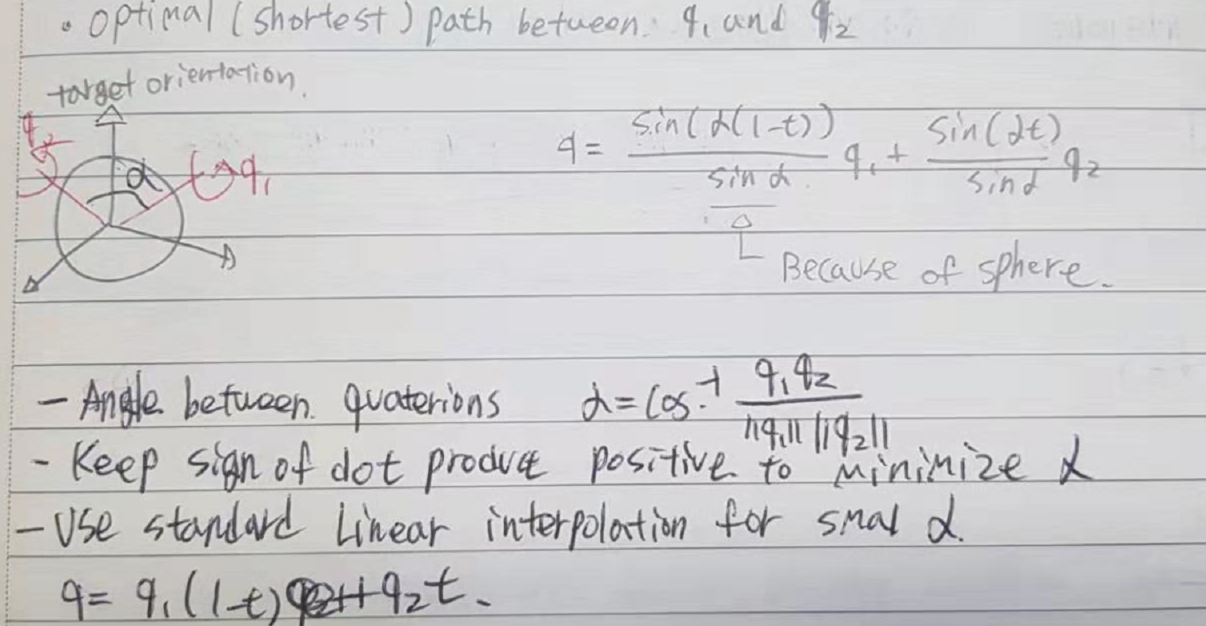 • optimal (shortest) path between q₁ and q₂
target orientation.
q₂
α
q₁
q = sin(α(1-t)) / sin α q₁ + sin(αt) / sin α q₂
Because of sphere.
- Angle between quaterions α = cos⁻¹ q₁q₂ / ||q₁|| ||q₂||
- Keep sign of dot product positive to minimize α
- Use standard Linear interpolation for smal α.
q = q₁(1-t) + q₂t.